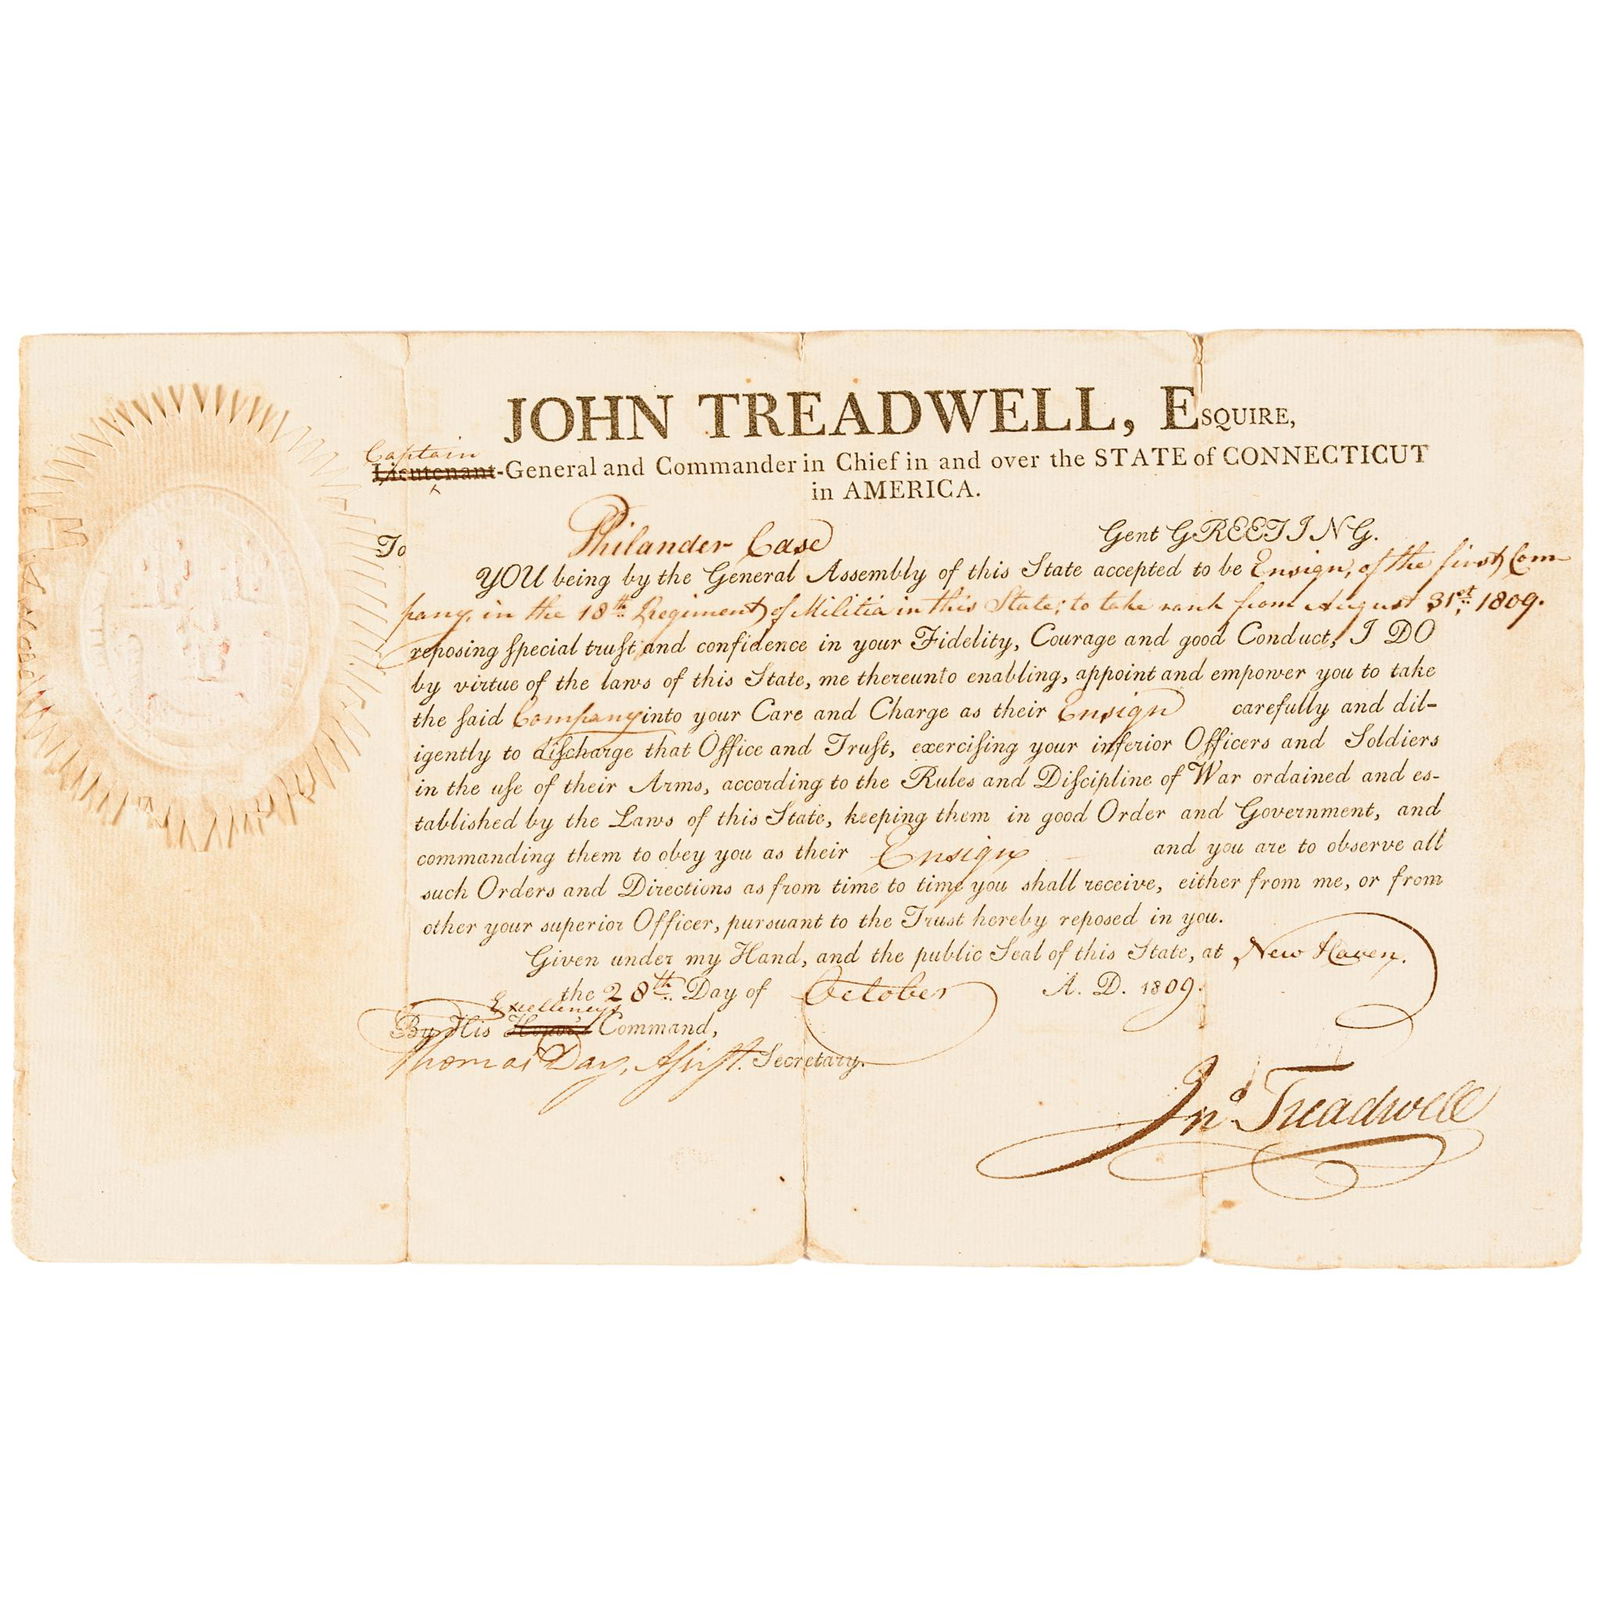 JOHN TREADWELL, ESQUIRE,
Captain
Lieutenant-General and Commander in Chief in and over the STATE of CONNECTICUT
in AMERICA.
To Philander Case Gent GREETING.
YOU being by the General Assembly of this State accepted to be Ensign, of the first Com
pany, in the 18th Regiment of Militia in this State; to take rank from August 31st, 1809.
reposing ſpecial truſt and confidence in your Fidelity, Courage and good Conduct, I DO
by virtue of the laws of this State, me thereunto enabling, appoint and empower you to take
the ſaid Company into your Care and Charge as their Ensign carefully and dil-
igently to diſcharge that Office and Truſt, exerciſing your inferior Officers and Soldiers
in the uſe of their Arms, according to the Rules and Diſcipline of War ordained and es-
tablished by the Laws of this State, keeping them in good Order and Government, and
commanding them to obey you as their Ensign and you are to observe all
such Orders and Directions as from time to time you shall receive, either from me, or from
other your superior Officer, pursuant to the Trust hereby reposed in you.
Given under my Hand, and the public Seal of this State, at New Haven,
the 28th Day of October A. D. 1809.
Excellency's
By His Honor's Command,
Thomas Day, Aſsiſt. Secretary.
Jno. Treadwell